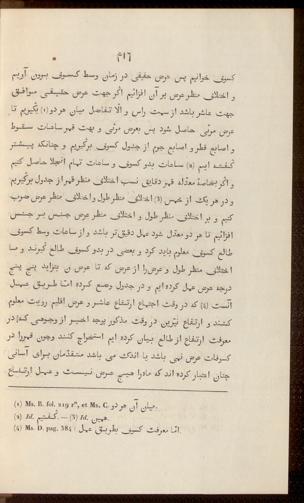 ۴۱۶
کسوف خوانیم پس عرض حقیقی در زمان وسط کسوف بیرون آوریم
و اختلاف منظر عرض بر آن افزائیم اگر جهت عرض حقیقی موافق
جهت عاشر باشد از سمت راس و الّا تفاضل میان هر دو (1) بگیریم تا
عرض مرئی حاصل شود پس بعرض مرئی و بهت قمر ساعات سقوط
و اصابع قطر و اصابع جرم از جدول کسوف برگیریم و چنانکه پیشتر
گفته ایم (2) ساعات بدو کسوف و ساعات تمام انجلا حاصل کنیم
و اگر بخاصهٔ معدّله قمر دقایق نسب اختلاف منظر قمر از جدول برگیریم
و در هر یک از خمس (3) اختلاف منظر طول و اختلاف منظر عرض ضرب
کنیم و بر اختلاف منظر طول و اختلاف منظر عرض جنس بر جنس
افزائیم تا هر دو معدّل شود عمل دقیق‌تر باشد و از ساعات وسط کسوف
طالع کسوف معلوم باید کرد و بعضی در بدو کسوف طالع گیرند و ما
اختلاف منظر طول و عرض را از عرض که تا عرض ن بتزاید پنج پنج
درجه عرض عمل کرده ایم و در جدول وضع کرده امّا طریق عمل
آنست (4) که در وقت اجتماع ارتفاع عاشر و عرض اقلیم رویت معلوم
کنند و ارتفاع نیّرین در وقت مذکور بوجه اخیر از وجوهی که در
معرفت ارتفاع از طالع بیان کرده ایم استخراج کنند وچون قمررا در
کسوفات عرض نمی باشد یا اندک می باشد متقدّمان برای آسانی
چنان اعتبار کرده اند که مادرا هیچ عرض نیست و عمل ارتفاع
(1) Ms. B. fol. 219 rº, et Ms. C. میان آن هر دو.
(2) Id. گفتیم. — (3) Id. همین.
(4) Ms. D. pag. 384 : امّا معرفت کسوف بطریق عمل.